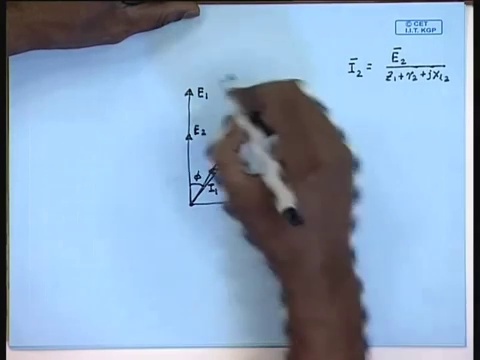 © CET
I.I.T. KGP
Ī₂ = Ē₂ / z₁+r₂+jx₁₂
E₁
E₂
φ
I₁